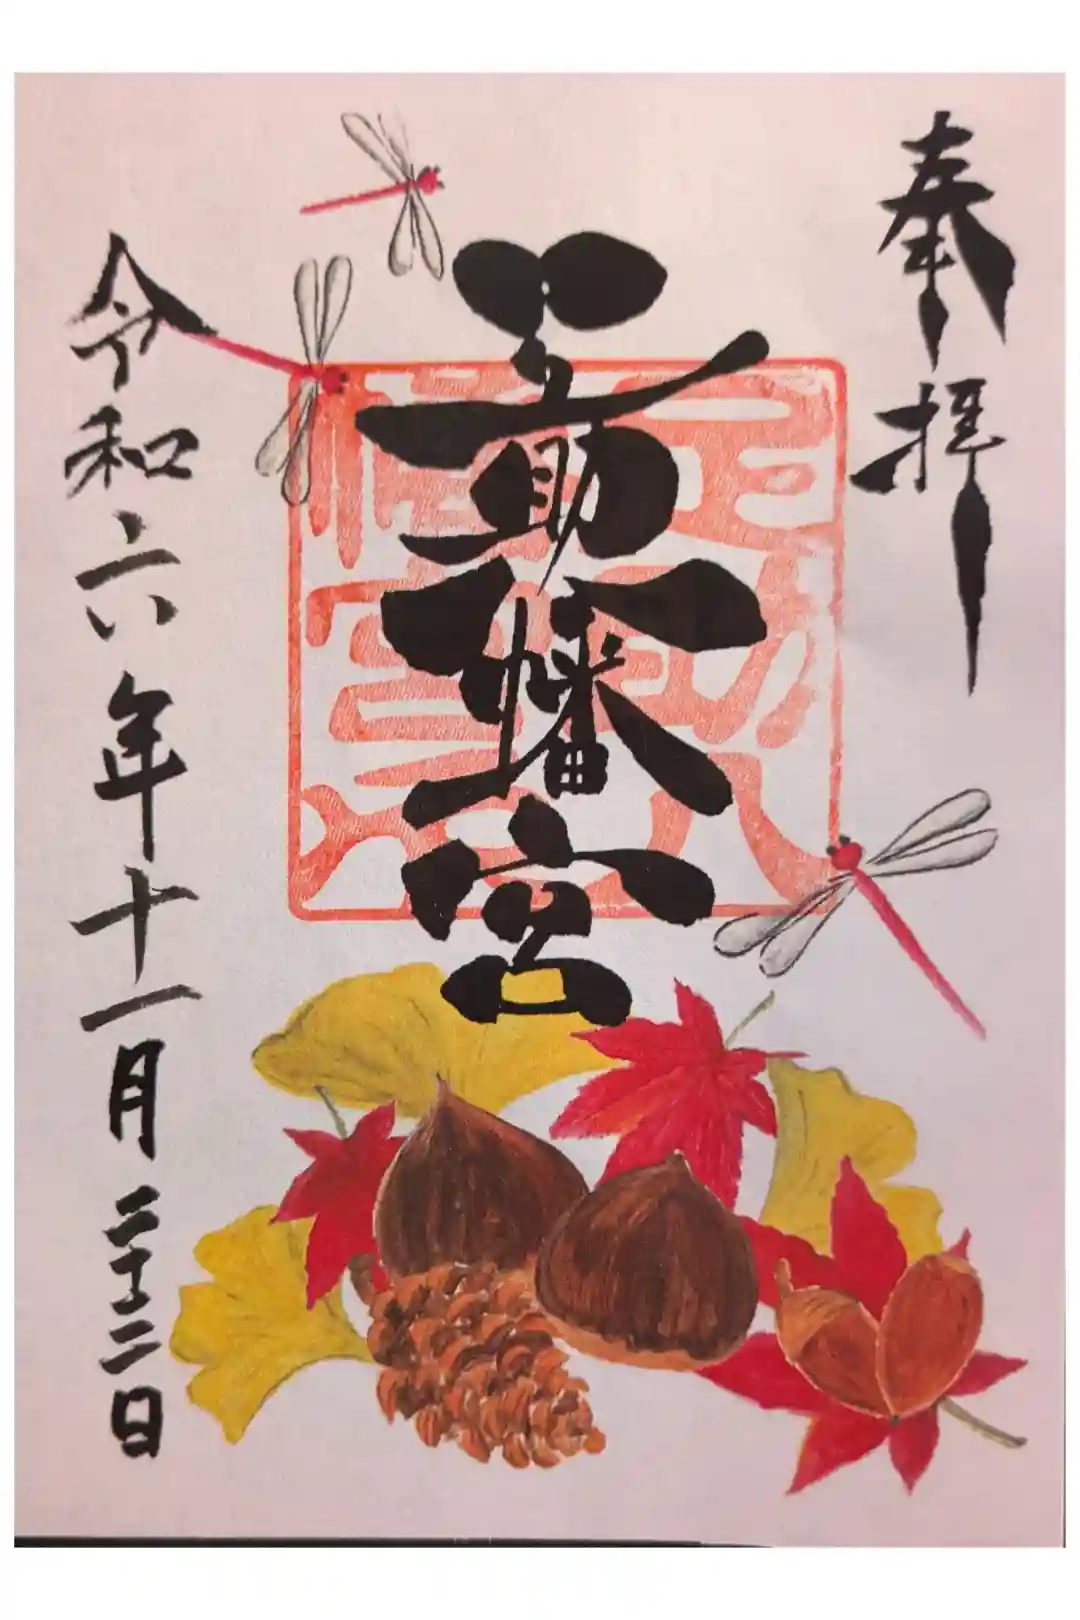 奉拝
足助八幡宮
令和六年十一月二十二日